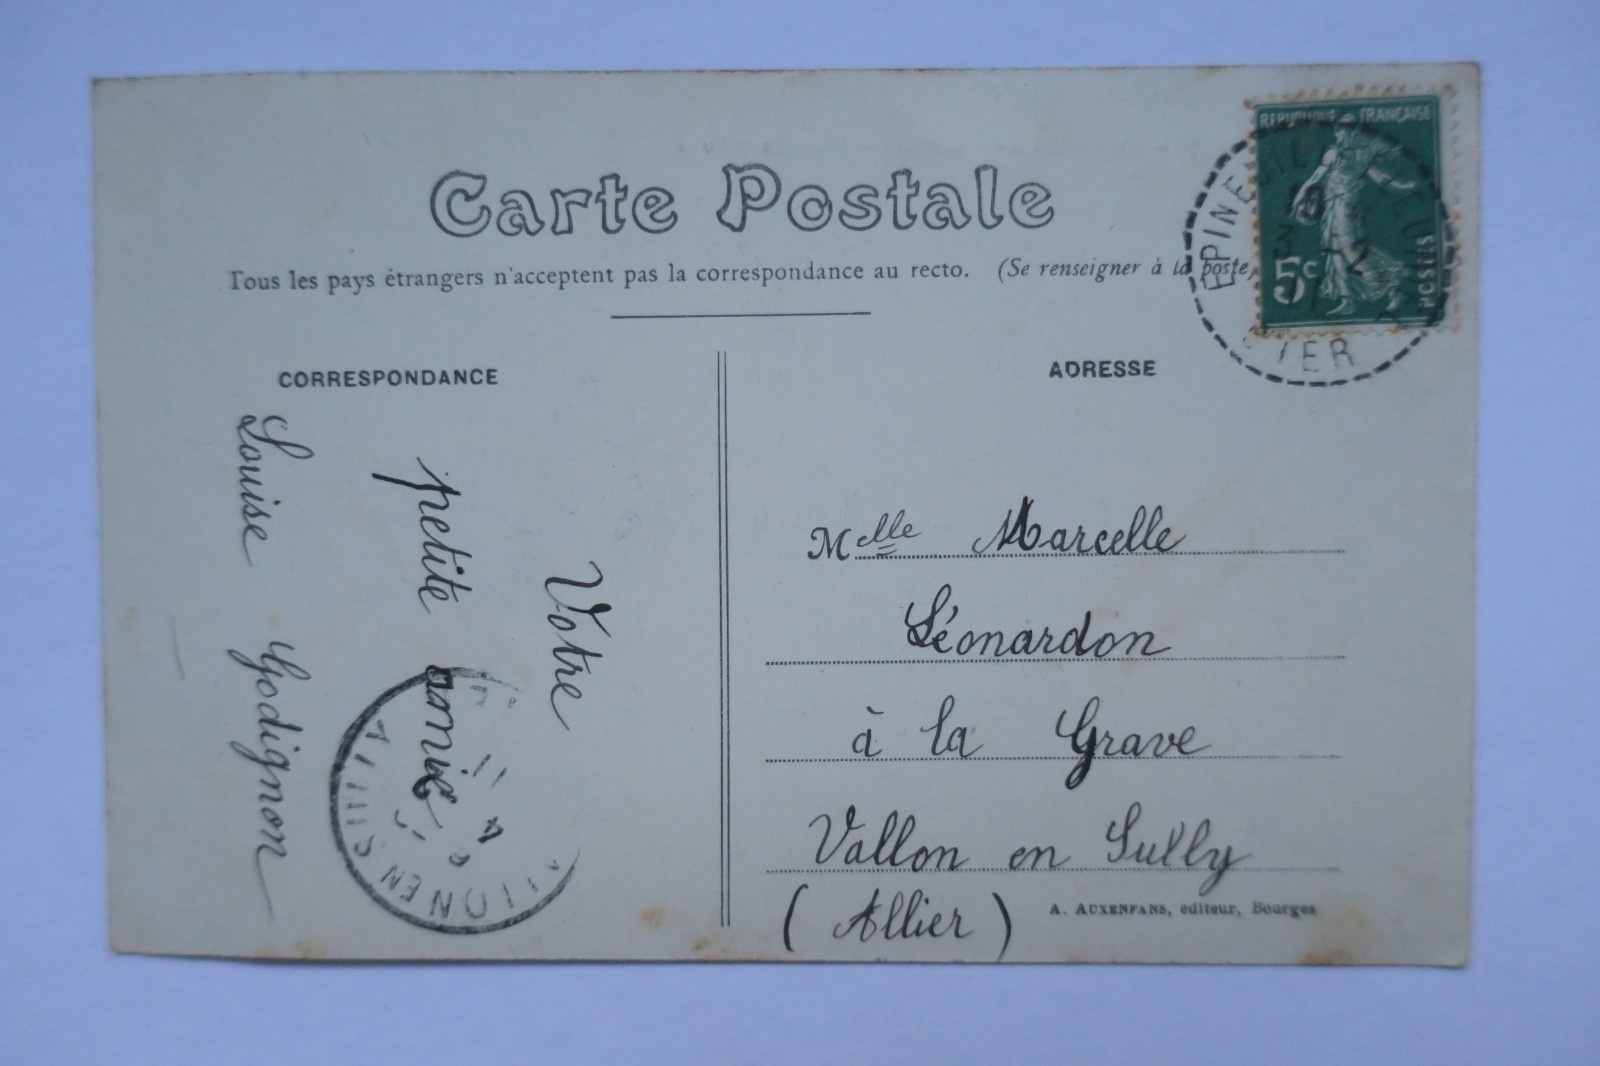 Carte Postale
Tous les pays étrangers n'acceptent pas la correspondance au recto. (Se renseigner à la poste)
CORRESPONDANCE
Votre
petite amie
Louise Godignon
ADRESSE
Melle Marcelle
Léonardon
à la Grave
Vallon en Sully
(Allier)
A. AUXENFANS, éditeur, Bourges
REPUBLIQUE FRANÇAISE
5c
POSTES